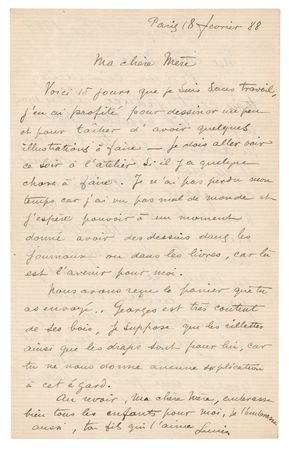 Paris 18 février 88
Ma chère Mère
Voici 15 jours que je suis sans travail,
j'en ai profité pour dessiner un peu
et pour tâcher d'avoir quelques
illustrations à faire — je dois aller voir
ce soir à l'atelier s'il y a quelque
chose à faire. Je n'ai pas perdu mon
temps car j'ai vu pas mal de monde et
j'espère pouvoir à un moment
donné avoir des dessins dans les
journaux ou dans les livres, car là
est l'avenir pour moi.
Nous avons reçu le panier que tu
as envoyé.. Georges est très content
de ses bois, je suppose que les rillettes
ainsi que les draps sont pour lui, car
tu ne nous donne aucune explication
à cet égard.
Au revoir, ma chère Mère, embrasse
bien tous les enfants pour moi, je t'embrasse
aussi, ton fils qui t'aime Lucien